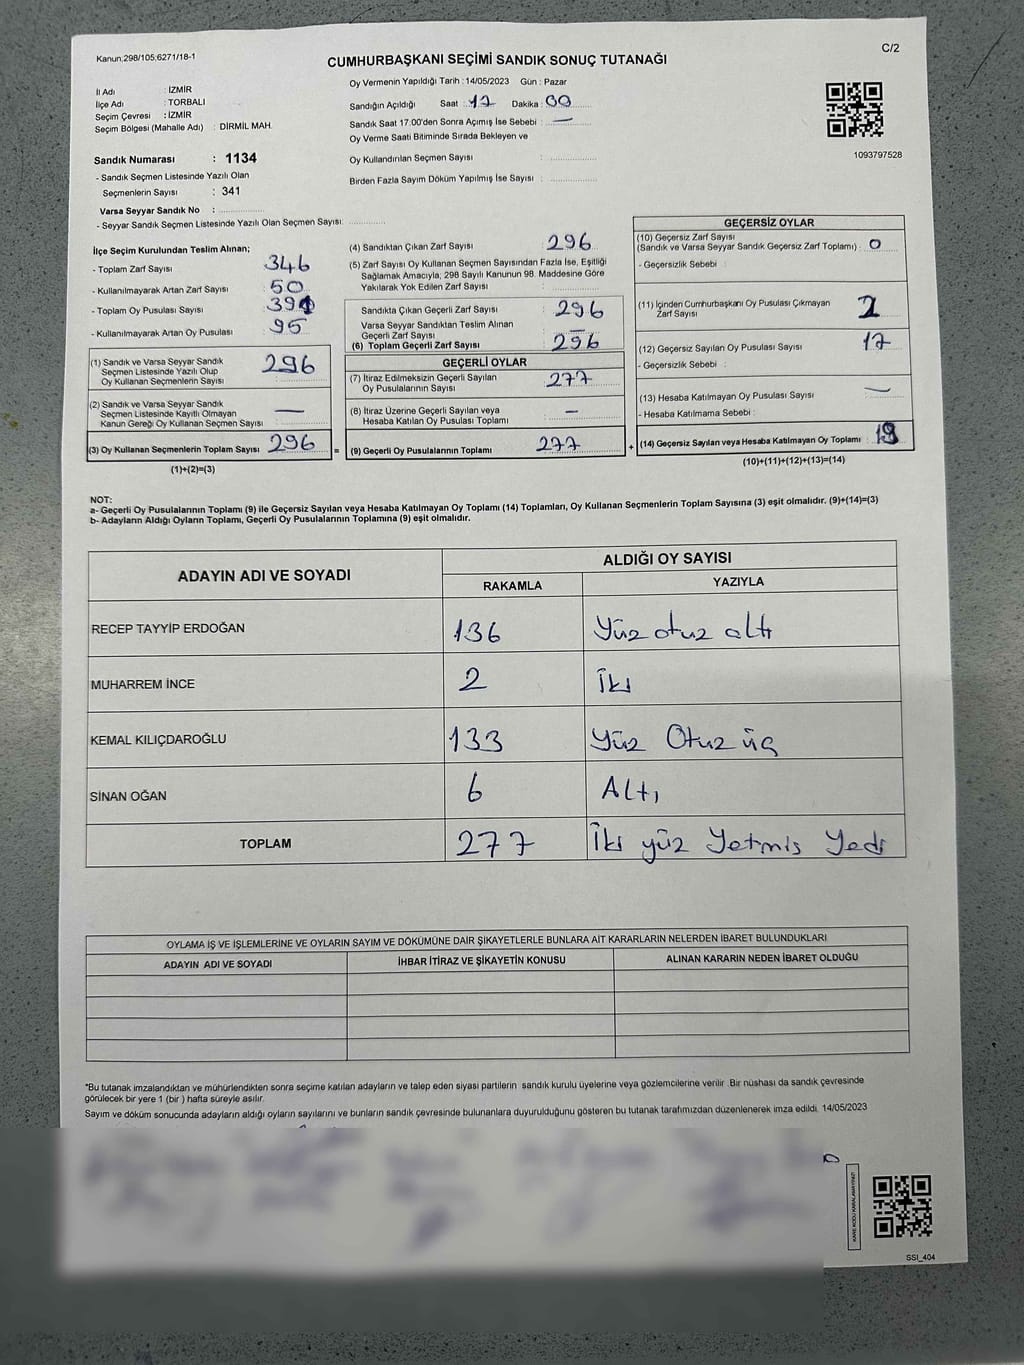 Kanun:298/105;6271/18-1
C/2
CUMHURBAŞKANI SEÇİMİ SANDIK SONUÇ TUTANAĞI
İl Adı : İZMİR
İlçe Adı : TORBALI
Seçim Çevresi : İZMİR
Seçim Bölgesi (Mahalle Adı) : DİRMİL MAH.
Sandık Numarası : 1134
- Sandık Seçmen Listesinde Yazılı Olan
Seçmenlerin Sayısı : 341
Varsa Seyyar Sandık No :
- Seyyar Sandık Seçmen Listesinde Yazılı Olan Seçmen Sayısı:
Oy Vermenin Yapıldığı Tarih : 14/05/2023 Gün : Pazar
Sandığın Açıldığı Saat : 17 Dakika : 00
Sandık Saat 17.00'den Sonra Açılmış İse Sebebi : —
Oy Verme Saati Bitiminde Sırada Bekleyen ve
Oy Kullandırılan Seçmen Sayısı :
Birden Fazla Sayım Döküm Yapılmış İse Sayısı :
1093797528
İlçe Seçim Kurulundan Teslim Alınan;
- Toplam Zarf Sayısı : 346
- Kullanılmayarak Artan Zarf Sayısı : 50
- Toplam Oy Pusulası Sayısı : 391
- Kullanılmayarak Artan Oy Pusulası : 95
(1) Sandık ve Varsa Seyyar Sandık
Seçmen Listesinde Yazılı Olup
Oy Kullanan Seçmenlerin Sayısı : 296
(2) Sandık ve Varsa Seyyar Sandık
Seçmen Listesinde Kayıtlı Olmayan
Kanun Gereği Oy Kullanan Seçmen Sayısı : —
(3) Oy Kullanan Seçmenlerin Toplam Sayısı : 296
(1)+(2)=(3)
(4) Sandıktan Çıkan Zarf Sayısı : 296
(5) Zarf Sayısı Oy Kullanan Seçmen Sayısından Fazla İse, Eşitliği
Sağlamak Amacıyla; 298 Sayılı Kanunun 98. Maddesine Göre
Yakılarak Yok Edilen Zarf Sayısı :
Sandıkta Çıkan Geçerli Zarf Sayısı : 296
Varsa Seyyar Sandıktan Teslim Alınan
Geçerli Zarf Sayısı : —
(6) Toplam Geçerli Zarf Sayısı : 296
GEÇERLİ OYLAR
(7) İtiraz Edilmeksizin Geçerli Sayılan
Oy Pusulalarının Sayısı : 277
(8) İtiraz Üzerine Geçerli Sayılan veya
Hesaba Katılan Oy Pusulası Toplamı : —
= (9) Geçerli Oy Pusulalarının Toplamı : 277
GEÇERSİZ OYLAR
(10) Geçersiz Zarf Sayısı
(Sandık ve Varsa Seyyar Sandık Geçersiz Zarf Toplamı) : 0
- Geçersizlik Sebebi :
(11) İçinden Cumhurbaşkanı Oy Pusulası Çıkmayan
Zarf Sayısı : 2
(12) Geçersiz Sayılan Oy Pusulası Sayısı : 17
- Geçersizlik Sebebi :
(13) Hesaba Katılmayan Oy Pusulası Sayısı : —
- Hesaba Katılmama Sebebi :
+ (14) Geçersiz Sayılan veya Hesaba Katılmayan Oy Toplamı : 19
(10)+(11)+(12)+(13)=(14)
NOT:
a- Geçerli Oy Pusulalarının Toplamı (9) ile Geçersiz Sayılan veya Hesaba Katılmayan Oy Toplamı (14) Toplamları, Oy Kullanan Seçmenlerin Toplam Sayısına (3) eşit olmalıdır. (9)+(14)=(3)
b- Adayların Aldığı Oyların Toplamı, Geçerli Oy Pusulalarının Toplamına (9) eşit olmalıdır.
ADAYIN ADI VE SOYADI ALDIĞI OY SAYISI
RAKAMLA YAZIYLA
RECEP TAYYİP ERDOĞAN 136 Yüz otuz altı
MUHARREM İNCE 2 İki
KEMAL KILIÇDAROĞLU 133 Yüz Otuz üç
SİNAN OĞAN 6 Altı
TOPLAM 277 İki yüz Yetmiş Yedi
OYLAMA İŞ VE İŞLEMLERİNE VE OYLARIN SAYIM VE DÖKÜMÜNE DAİR ŞİKAYETLERLE BUNLARA AİT KARARLARIN NELERDEN İBARET BULUNDUKLARI
ADAYIN ADI VE SOYADI İHBAR İTİRAZ VE ŞİKAYETİN KONUSU ALINAN KARARIN NEDEN İBARET OLDUĞU
*Bu tutanak imzalandıktan ve mühürlendikten sonra seçime katılan adayların ve talep eden siyasi partilerin sandık kurulu üyelerine veya gözlemcilerine verilir .Bir nüshası da sandık çevresinde
görülecek bir yere 1 (bir ) hafta süreyle asılır.
Sayım ve döküm sonucunda adayların aldığı oyların sayılarını ve bunların sandık çevresinde bulunanlara duyurulduğunu gösteren bu tutanak tarafımızdan düzenlenerek imza edildi. 14/05/2023
KARE KODU KARALAMAYINIZ!
SSI_404